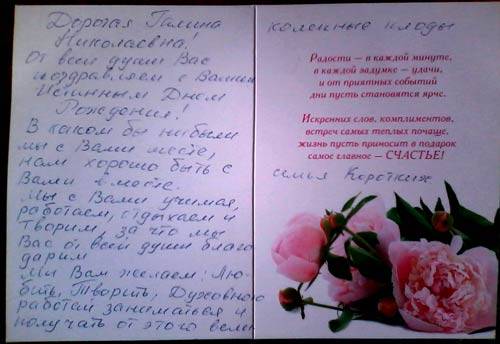 Дорогая Галина
Николаевна!
От всей души Вас
поздравляем с Вашим
Истинным Днем
Рождения!
В каком бы ни были
мы с Вами месте,
нам хорошо быть с
Вами вместе.
Мы с Вами учимся,
работаем, отдыхаем и
творим, за что мы
Вас от всей души благо
дарим
Мы Вам желаем: Лю-
бить, Творить, Духовною
работой заниматься и
получать от этого
плоды
Радости — в каждой минуте,
в каждой задумке — удачи,
и от приятных событий
дни пусть становятся ярче.
Искренних слов, комплиментов,
встреч самых теплых почаще,
жизнь пусть приносит в подарок
самое главное — СЧАСТЬЕ!
семья Коротких